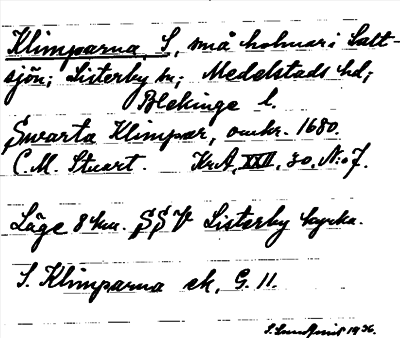 Klimparna, S, små holmar i Salt-
sjön; Listerby sn; Medelstads hd;
Blekinge l.
Swarta Klimpar, omkr. 1680.
C. M. Stuart. KrA, XXII, 30, N:o 7.
Läge 8 km. SSV Listerby kyrka.
S. Klimparna ek. G. 11.
S. Lundqvist 1936.